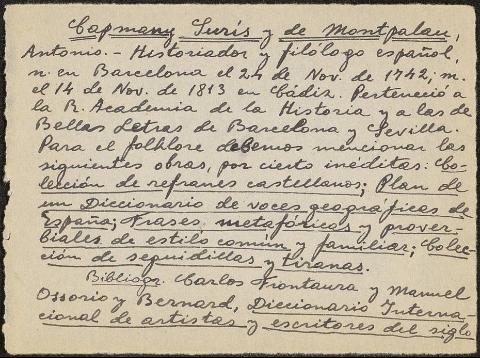 Capmany Surís y de Montpalau,
Antonio. - Historiador y filólogo español,
n. en Barcelona el 24 de Nov. de 1742, m.
el 14 de Nov. de 1813 en Cádiz. Perteneció a
la R. Academia de la Historia y a las de
Bellas Letras de Barcelona y Sevilla.
Para el folklore debemos mencionar las
siguientes obras, por cierto inéditas: Co-
lección de refranes castellanos; Plan de
un Diccionario de voces geográficas de
España; Frases metafóricas y prover-
biales de estilo común y familiar; Colec-
ción de seguidillas y tiranas.
Bibliogr. Carlos Frontaura y Manuel
Ossorio y Bernard, Diccionario Interna-
cional de artistas y escritores del siglo